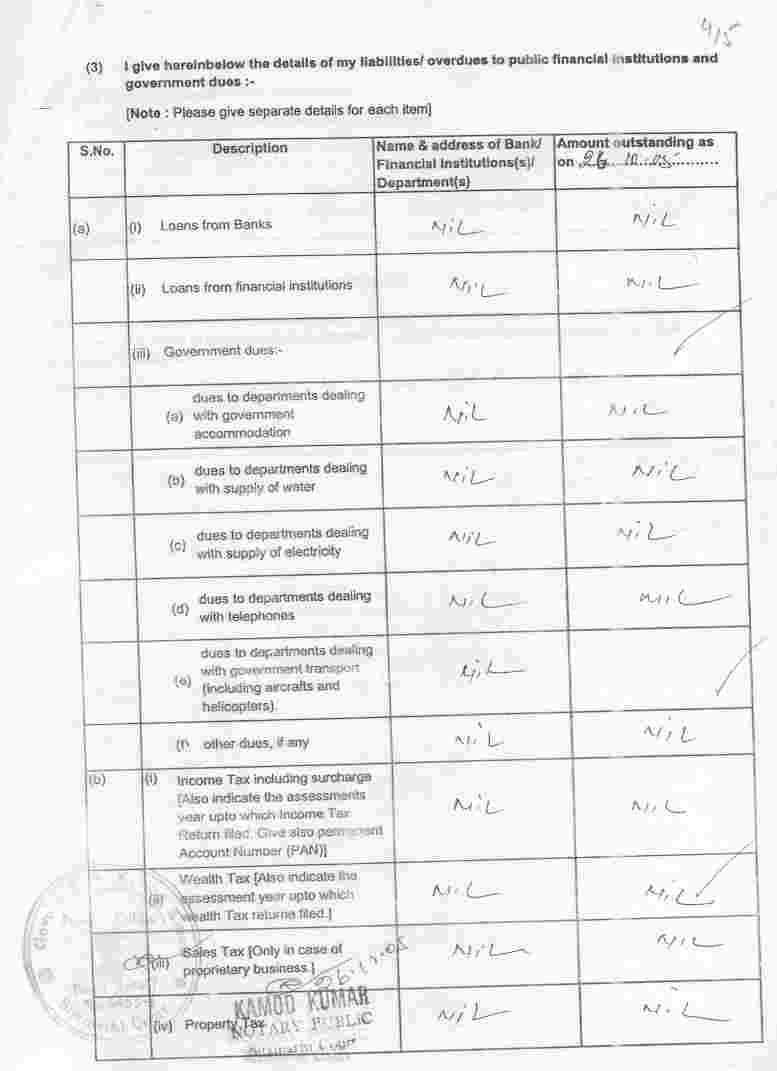 4/5
(3) I give hereinbelow the details of my liabilities/ overdues to public financial institutions and
government dues :-
[Note : Please give separate details for each item]
S.No. Description Name & address of Bank/ Financial Institutions(s)/ Department(s) Amount outstanding as on 26.10.05...........
(a) (i) Loans from Banks NiL NiL
(ii) Loans from financial institutions NiL NiL
(iii) Government dues:-
(a) dues to departments dealing with government accommodation NiL NiL
(b) dues to departments dealing with supply of water NiL NiL
(c) dues to departments dealing with supply of electricity NiL NiL
(d) dues to departments dealing with telephones NiL NiL
(e) dues to departments dealing with government transport (including aircrafts and helicopters). NiL
(f) other dues, if any NiL NiL
(b) (i) Income Tax including surcharge [Also indicate the assessments year upto which Income Tax Return filed. Give also permanent Account Number (PAN)] NiL NiL
(ii) Wealth Tax [Also indicate the assessment year upto which wealth Tax returns filed.] NiL NiL
(iii) Sales Tax [Only in case of proprietary business.] NiL NiL
(iv) Property Tax NiL NiL
KAMOD KUMAR
NOTARY PUBLIC